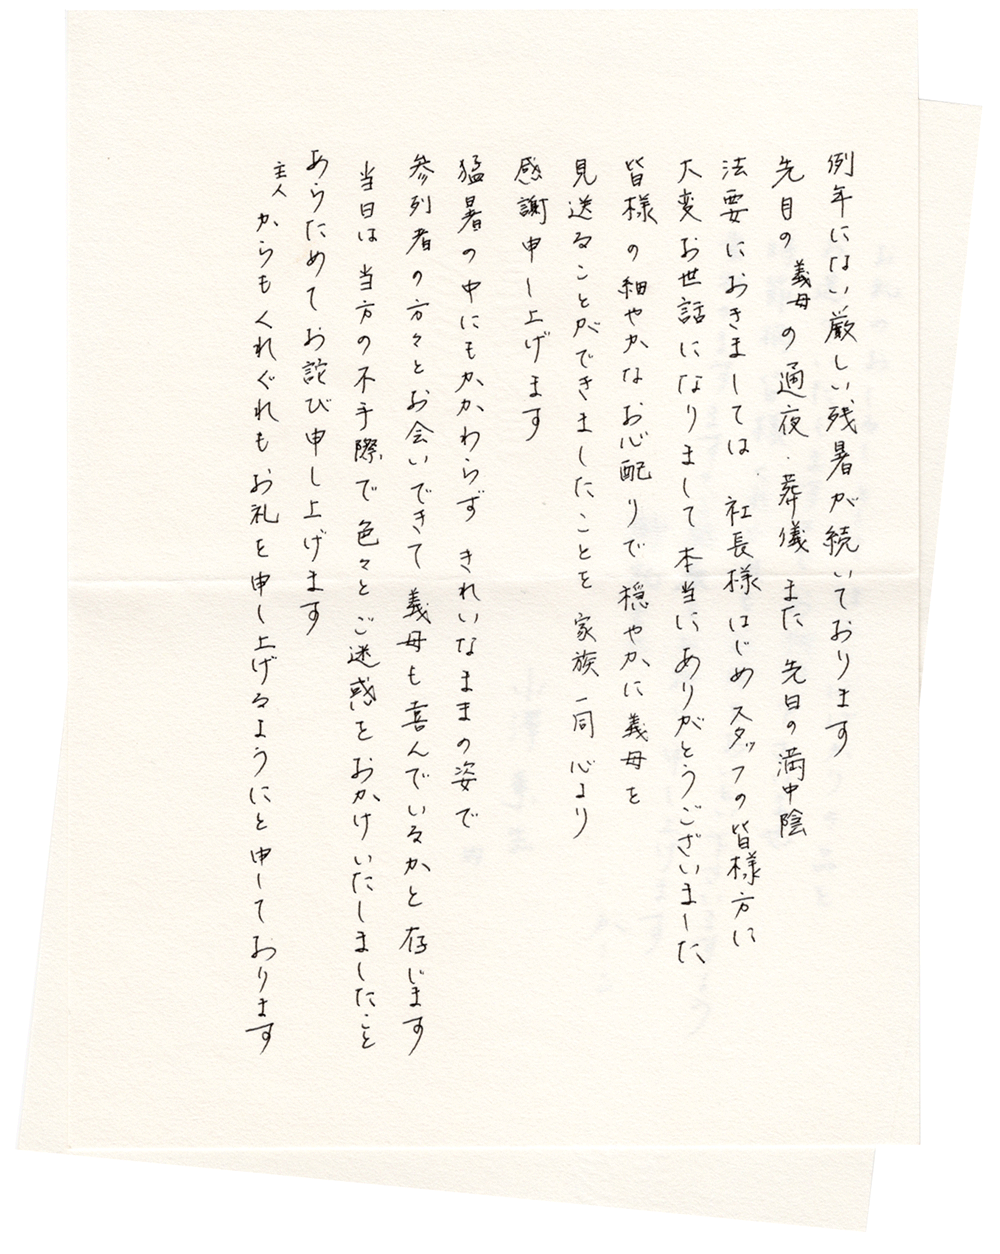 例年にない厳しい残暑が続いております
先日の義母の通夜・葬儀 また 先日の満中陰
法要におきましては 社長様はじめスタッフの皆様方に
大変お世話になりまして 本当にありがとうございました
皆様の細やかなお心配りで 穏やかに義母を
見送ることができましたことを 家族一同心より
感謝申し上げます
猛暑の中にもかかわらず きれいなままの姿で
参列者の方々とお会いできて 義母も喜んでいるかと存じます
当日は 当方の不手際で色々とご迷惑をおかけいたしましたこと
あらためてお詫び申し上げます
主人からもくれぐれもお礼を申し上げるようにと申しております